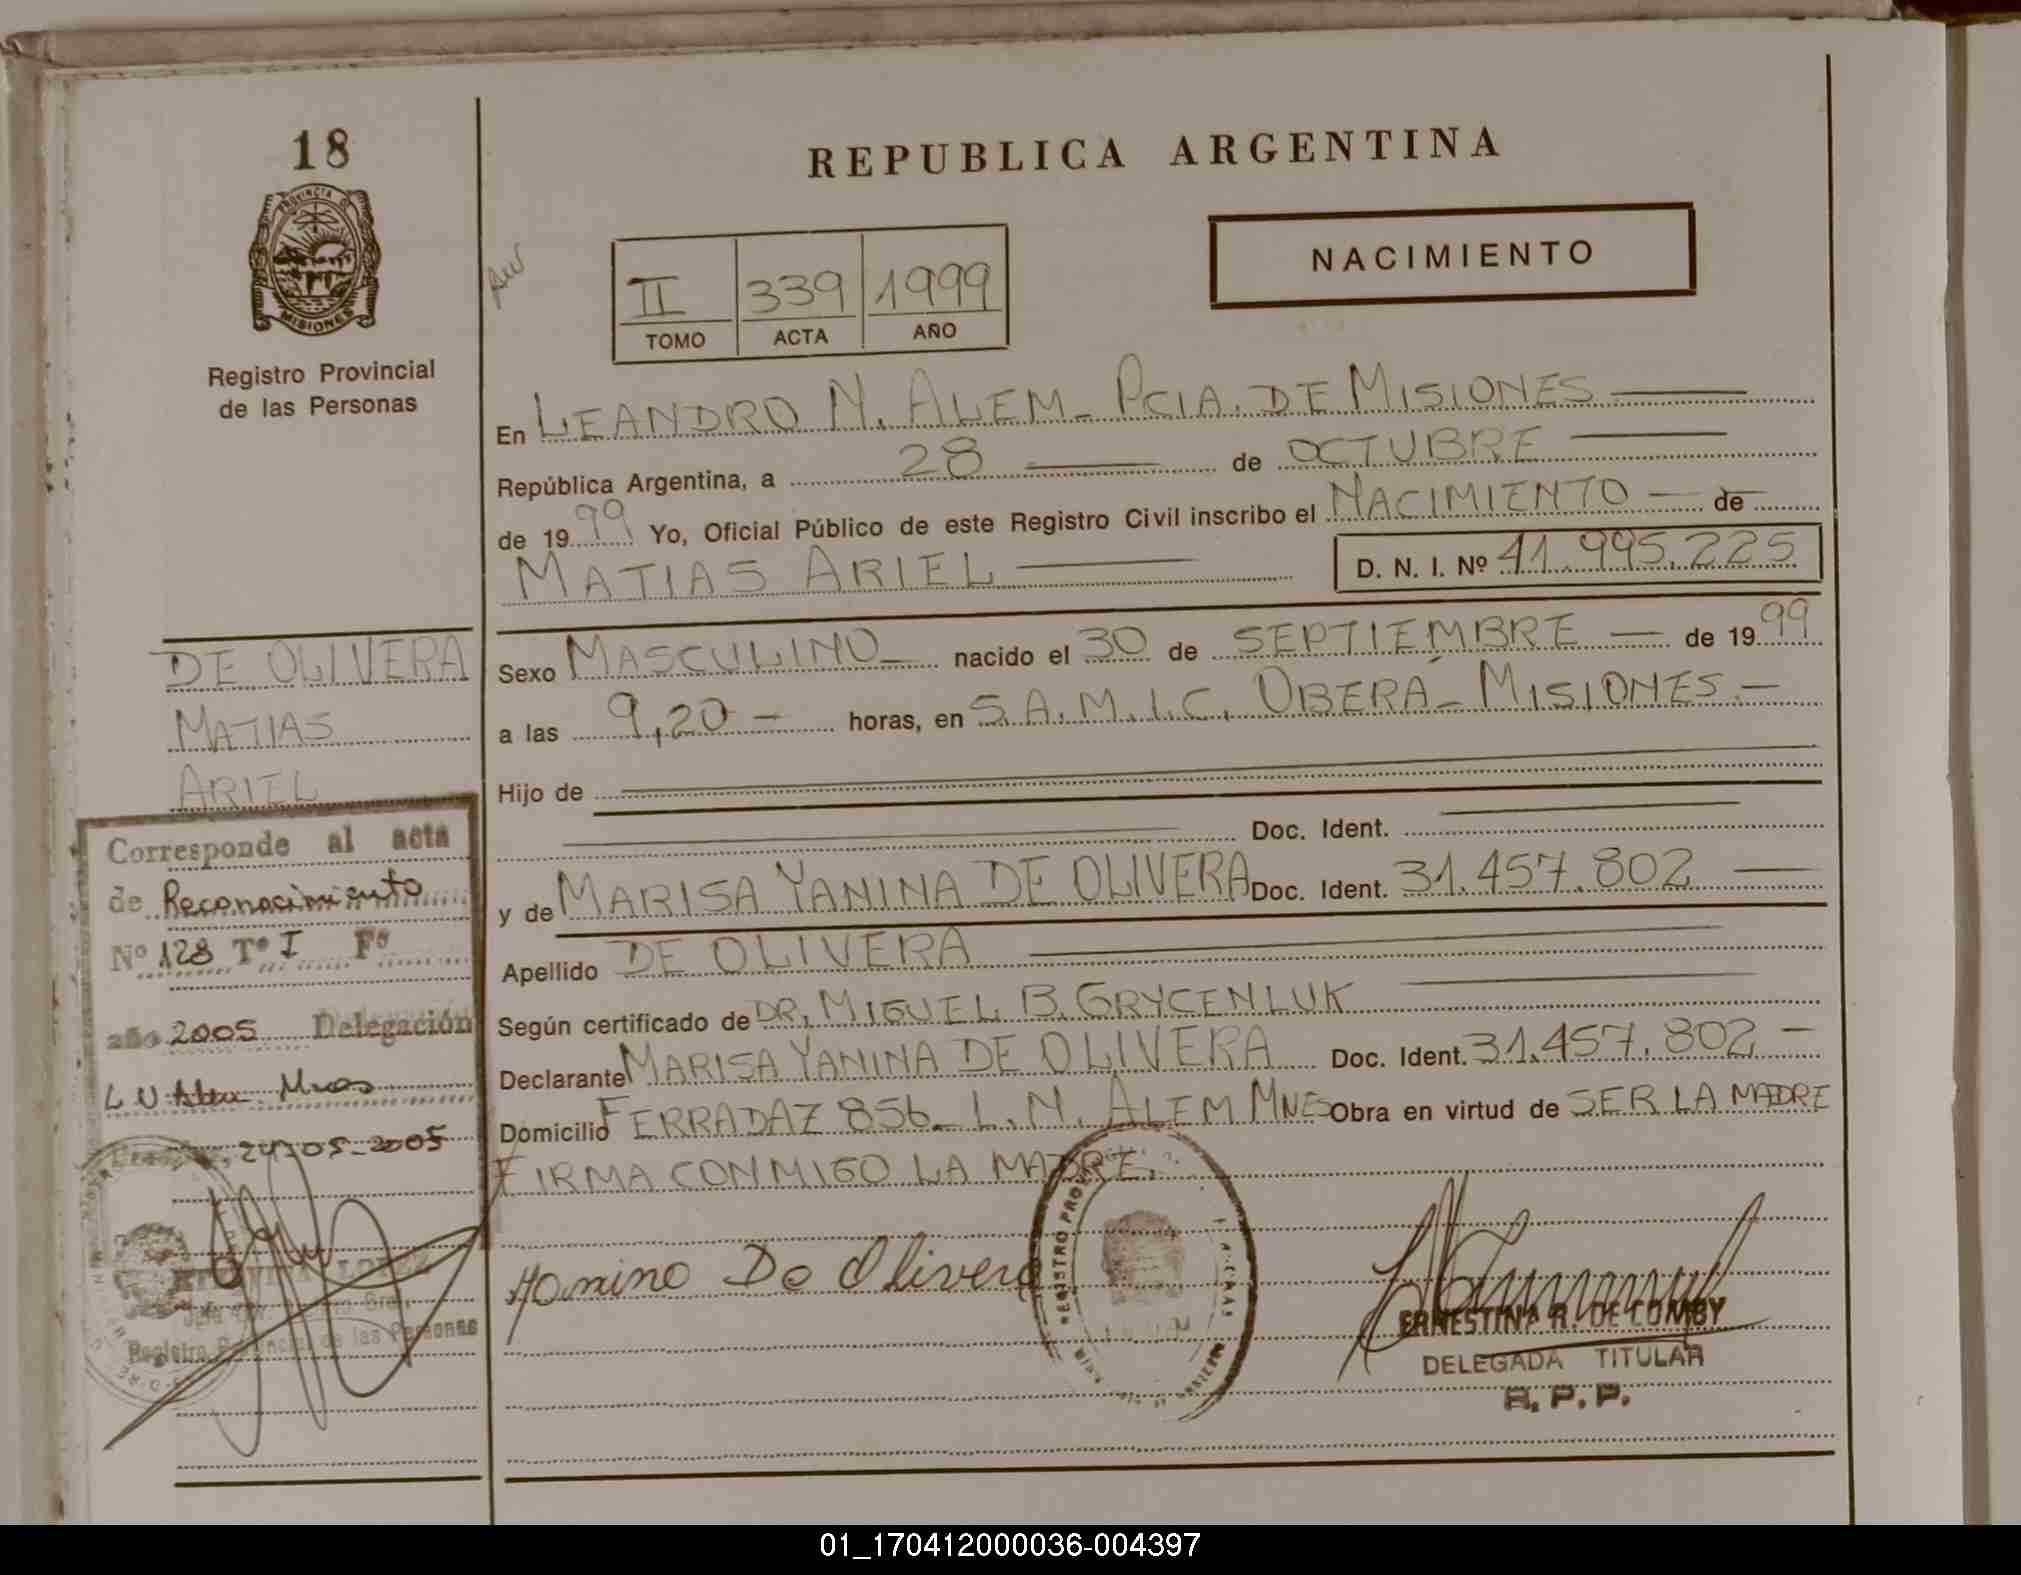 18
PROVINCIA D
MISIONES
Registro Provincial
de las Personas
DE OLIVERA
MATIAS
ARIEL
Corresponde al acta
de Reconocimiento
Nº 128 Tº I Fº
año 2005 Delegación
24-05-2005
Registro Provincial de las Personas
REPUBLICA ARGENTINA
NACIMIENTO
II 339 1999
TOMO ACTA AÑO
En LEANDRO N. ALEM - PCIA. DE MISIONES
República Argentina, a 28 de OCTUBRE
de 1999 Yo, Oficial Público de este Registro Civil inscribo el NACIMIENTO - de
MATIAS ARIEL D. N. I. Nº 41.995.225
Sexo MASCULINO - nacido el 30 de SEPTIEMBRE - de 1999
a las 9,20 - horas, en S.A.M.I.C. OBERÁ - MISIONES. -
Hijo de
Doc. Ident.
y de MARISA YANINA DE OLIVERA Doc. Ident. 31.457.802
Apellido DE OLIVERA
Según certificado de DR. MIGUEL B. GRYCENLUK
Declarante MARISA YANINA DE OLIVERA Doc. Ident. 31.457.802 -
Domicilio FERRADAZ 856 - L.N. ALEM MNES Obra en virtud de SER LA MADRE
FIRMA CONMIGO LA MADRE.
De Olivera
ERNESTINA R. DE COMBY
DELEGADA TITULAR
R. P. P.
01_170412000036-004397